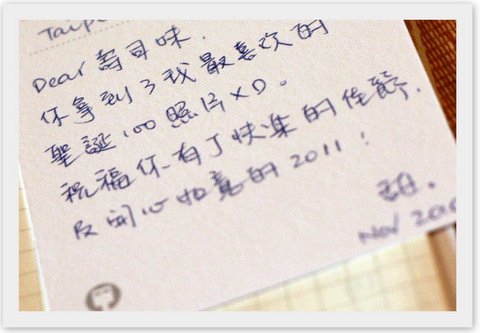 Taipe
Dear 壽司味.
你拿到了我最喜欢的
聖誕100照片XD。
祝福你有丁快樂的佳節.
及開心如意的2011!
Nov 2010